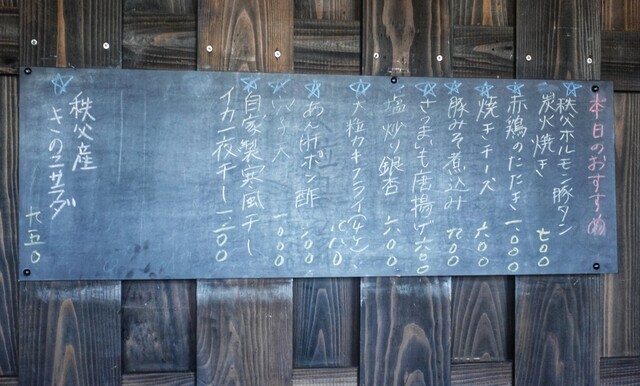 本日のおすすめ
☆秩父ホルモン豚タン
炭火焼き 七〇〇
☆赤鶏のたたき 一、〇〇〇
☆焼きチーズ 六〇〇
☆豚みそ煮込み
☆さつまいも唐揚げ 六〇〇
塩炒り銀杏 六〇〇
☆大粒カキフライ
☆あん肝ポン酢
一〇〇〇
☆自家製寒風干し
イカ一夜干し 一、二〇〇
☆秩父産
きのこサラダ 七五〇